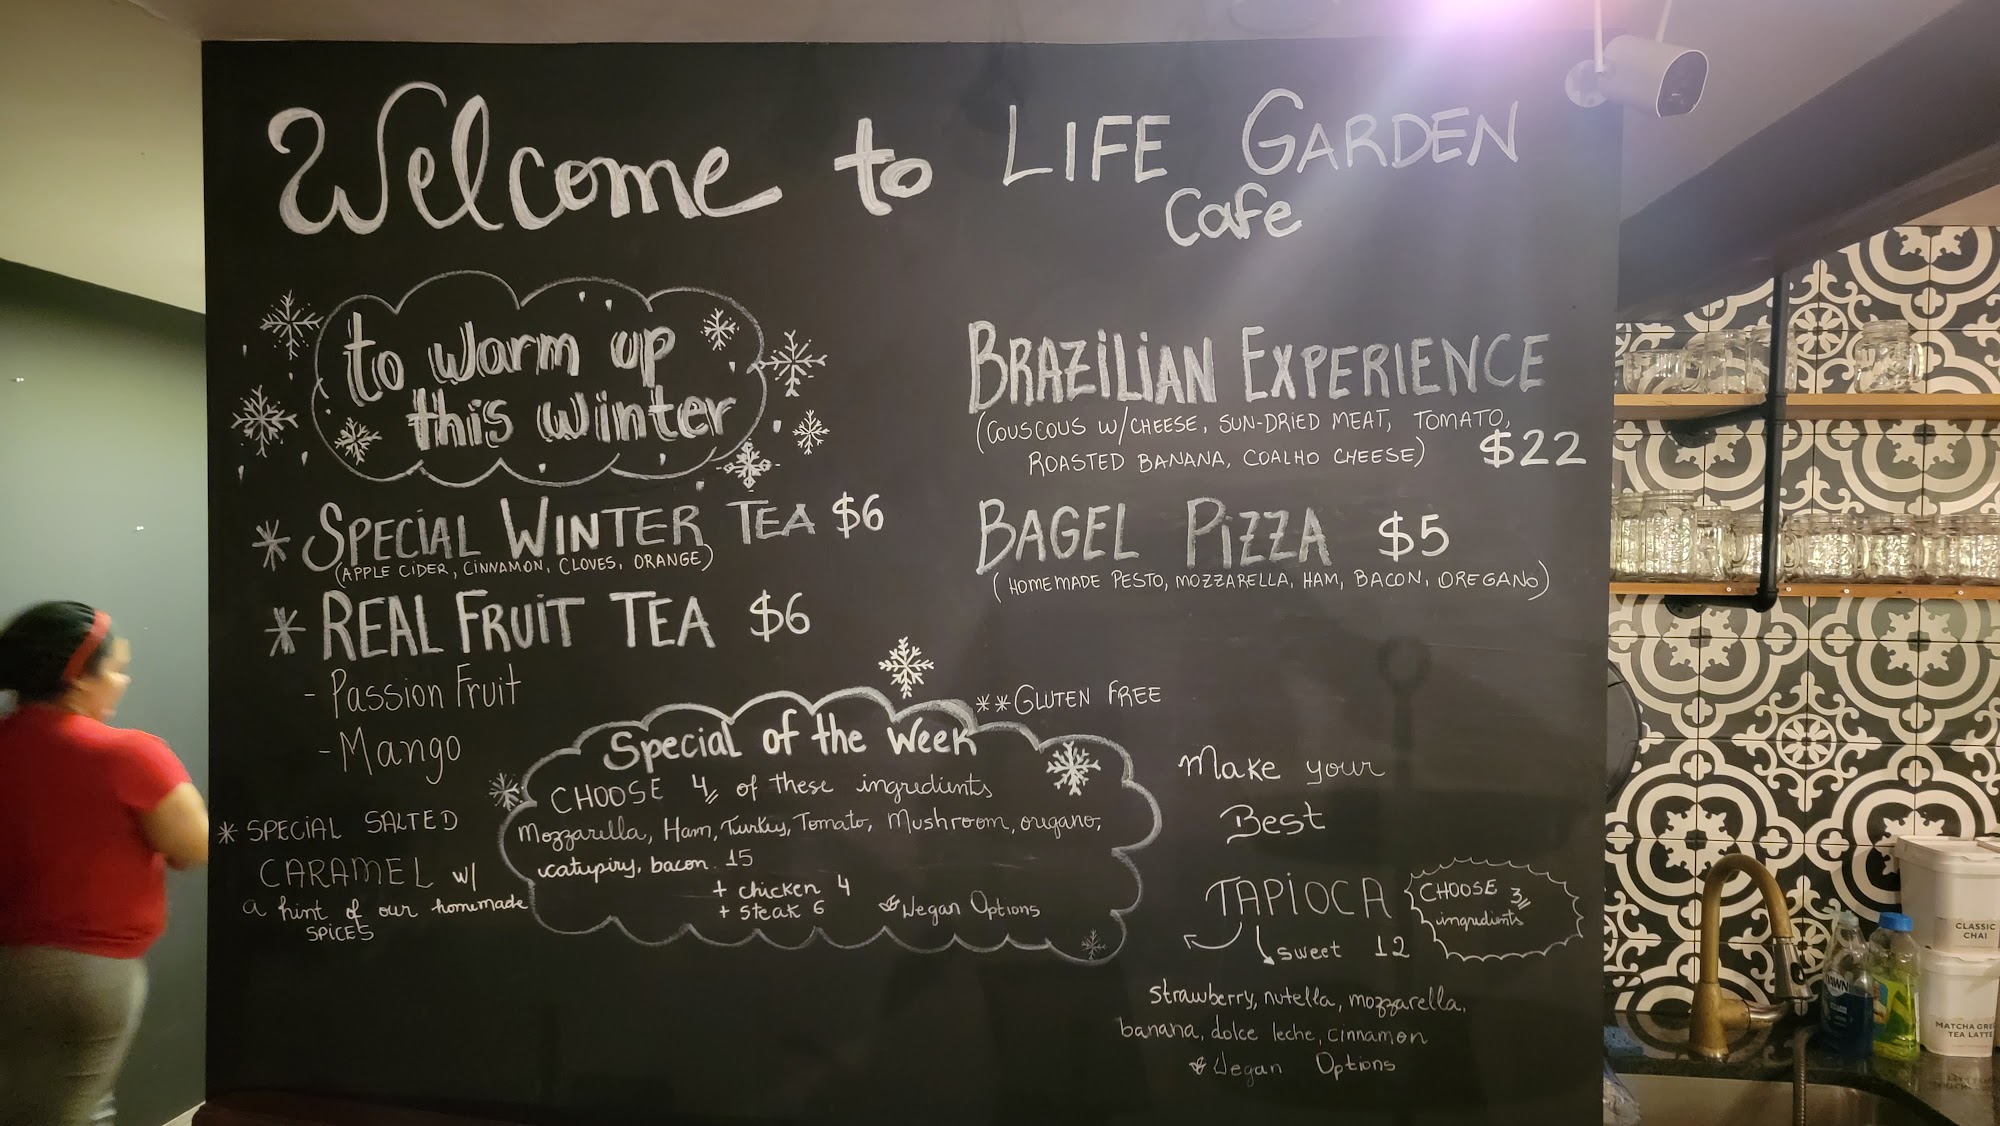 Welcome to LIFE GARDEN
Cafe
to warm up
this winter
* SPECIAL WINTER TEA $6
(APPLE CIDER, CINNAMON, CLOVES, ORANGE)
* REAL FRUIT TEA $6
- Passion Fruit
- Mango
* SPECIAL SALTED
CARAMEL w/
a hint of our homemade
SPICES
BRAZILIAN EXPERIENCE
(COUSCOUS W/CHEESE, SUN-DRIED MEAT, TOMATO,
ROASTED BANANA, COALHO CHEESE) $22
BAGEL PIZZA $5
(HOMEMADE PESTO, MOZZARELLA, HAM, BACON, OREGANO)
**GLUTEN FREE
Special of the Week
CHOOSE 4 of these ingredients
Mozzarella, Ham, Turkey, Tomato, Mushroom, oregano,
catupiry, bacon. 15
+ chicken 4
+ steak 6
Vegan Options
Make your
Best
TAPIOCA
CHOOSE 3
ingredients
sweet 12
strawberry, nutella, mozzarella,
banana, dolce leche, cinnamon
Vegan Options
CLASSIC
CHAI
MATCHA GRE
TEA LATTE